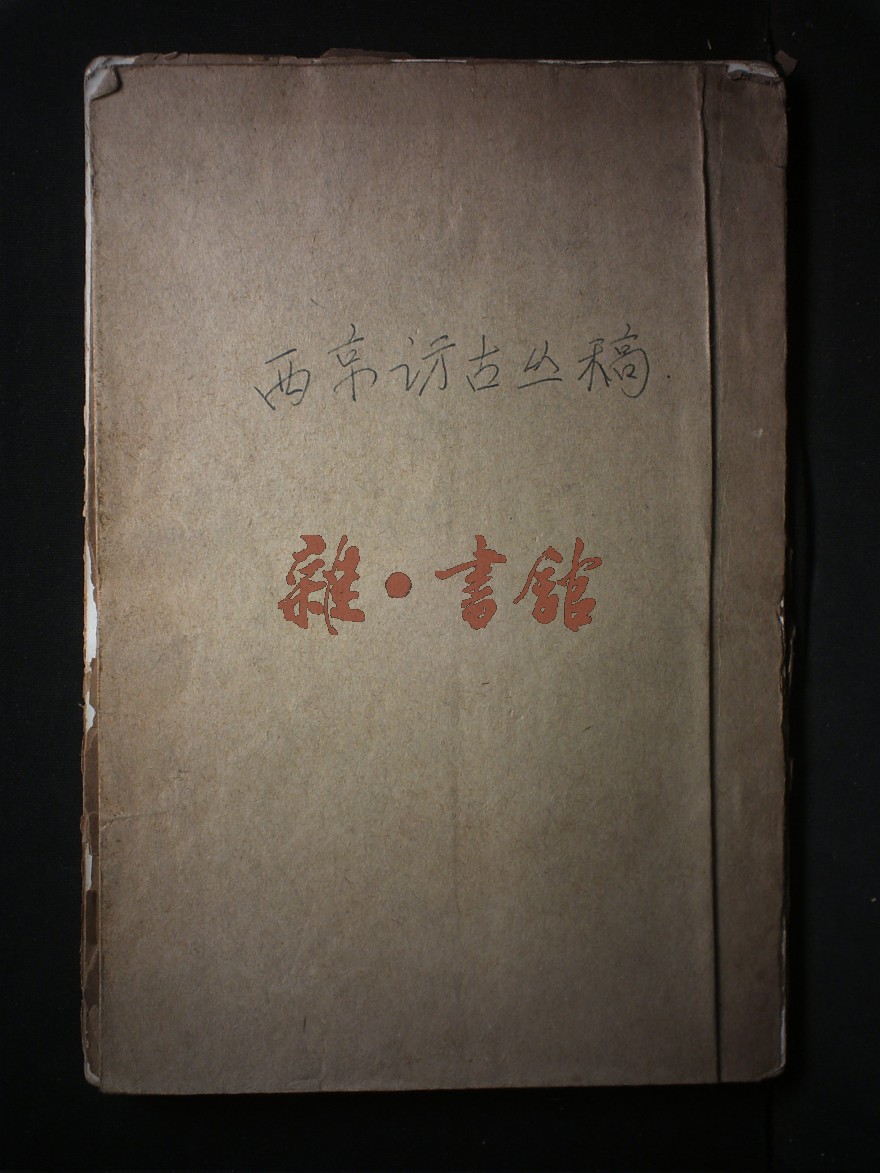 西京访古丛稿.
雜·書館